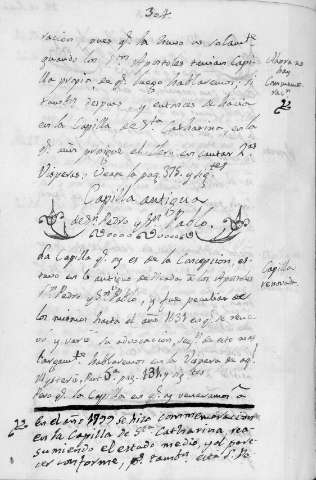 304
ración pues q.e la huvo no solam.te
quando los S.tos Apostoles tenian Capi-
lla propia de q.e luego hablaremos; si
tamb.n despues, y entonces se hacia
en la Capilla de S.ta Catharina, en la
q.e aun prosigue el Clero en cantar 2.as
Visperas; Vease la pag. 375. y sig.tes
Ahora no
hay
Conmemo-
rac.n
Capilla antigua
de Sn. Pedro y Sn. Pablo.
La Capilla q.e oy es de la Concepcion, es-
tuvo en lo antiguo dedicada a los Apostoles
S.n Pedro y S.n Pablo, y fue peculiar de
los mismos hasta el año 1431 en q.e se reno-
vo y varió la advocacion, seg.n de esto mas
largam.te hablaremos en la Vispera de aq.l
Mysterio, Part. 6.a pag. 134 y sig.tes
Pero q.e la Capilla en q.e oy veneramos a
Capilla
renovada
En el año 1799 se hizo conmemoracion
en la Capilla de S.ta Catharina, rea-
sumiendo el estado medio, y al pare-
cer conforme, p.r tamb.n esta S.ta